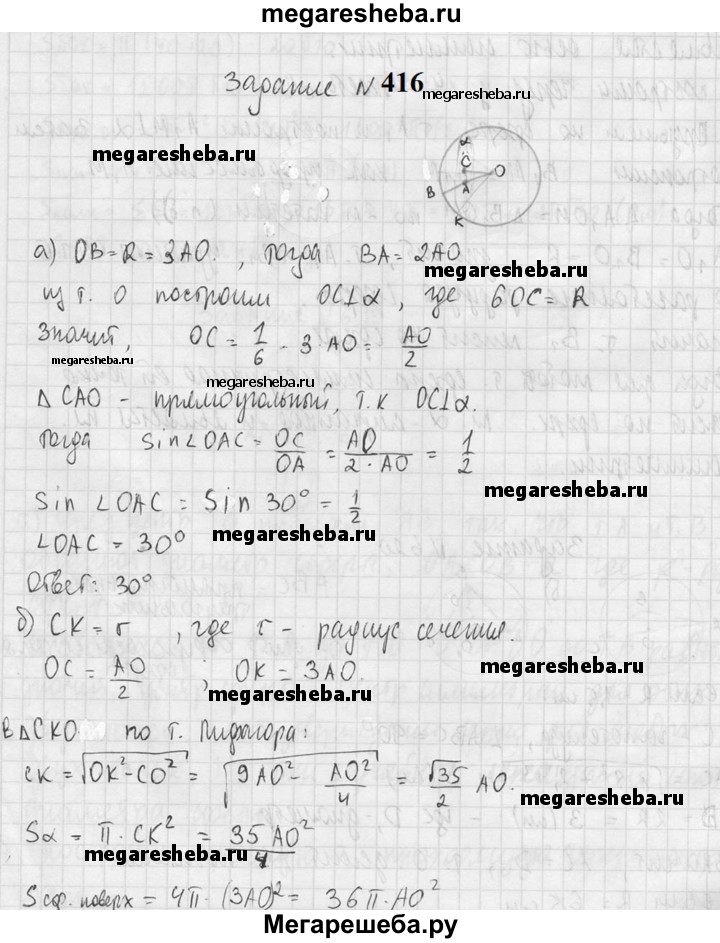 megaresheba.ru
Задание N 416
megaresheba.ru
megaresheba.ru
α
C
O
B
A
K
а) OB=R=3AO. , тогда BA=2AO
megaresheba.ru
из т. O построим OC⊥α, где 6OC=R
Значит, OC=1/6·3AO=AO/2
megaresheba.ru
megaresheba.ru
△CAO - прямоугольный, т.к OC⊥α.
тогда sin∠OAC=OC/OA=AO/2·AO=1/2
megaresheba.ru
Sin ∠OAC = Sin 30°=1/2
megaresheba.ru
∠OAC = 30°
Ответ: 30°
б) CK=r , где r - радиус сечения.
megaresheba.ru
OC=AO/2 ; OK=3AO.
megaresheba.ru
В△CKO по т. Пифагора:
CK=√OK²-CO²=√9AO²-AO²/4=√35/2 AO.
megaresheba.ru
Sα=π·CK²=35AO²/4
megaresheba.ru
S сф. поверх = 4π·(3AO)²= 36π·AO²
Мегарешеба.ру